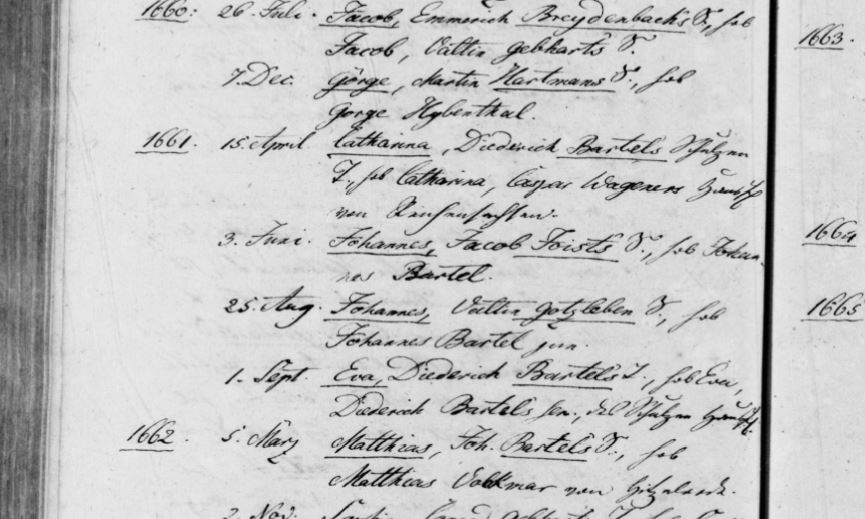 1660: 26. Juli. Jacob, Emmerich Breydenbach's S., hob
Jacob, Valtin Gebhart's S.
7. Dec. Görge, Martin Hartmans S., hob
Görge Hybenthal.
1661. 15. April Catharina, Diederich Bartels Schulzen
T., hob Catharina, Caspar Wageners Hausfr
von
3. Juni. Johannes, Jacob Joists S., hob Johan-
nes Bartel.
25. Aug. Johannes, Valtin Gotzleben S., hob
Johannes Bartel jun.
1. Sept. Eva, Diederich Bartels T., hob Eva,
Diederich Bartels sen., des Schulzen Hausfr.
1662. 5. März Matthias, Joh. Bartels S., hob
Matthias Volkmar von
2. Nov.
1663.
1664
1665